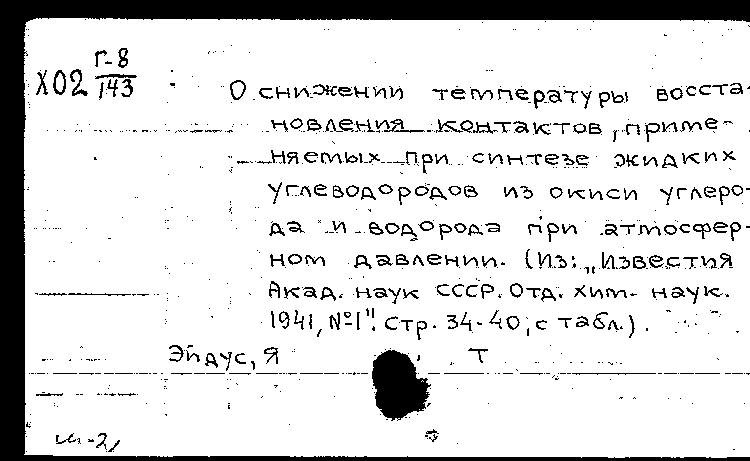 Г-8
Х02 143
О снижении температуры восста-
новления контактов, приме-
няемых при синтезе жидких
углеводородов из окиси углеро-
да и водорода при атмосфер-
ном давлении. (Из: „Известия
Акад. наук СССР. Отд. хим. наук.
1941, №1". Стр. 34-40, с табл.).
Эйдус, Я Т